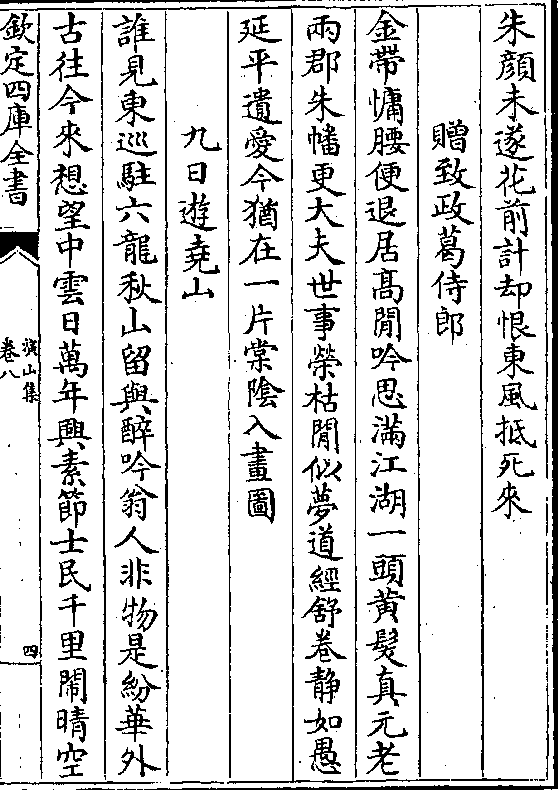 朱顔未遂花前計却恨東風抵死來
贈致政葛侍郎
金帶慵腰便退居髙閒吟思滿江湖一頭黄髮真元老
兩郡朱幡更大夫世事榮枯閒似夢道經舒卷静如愚
延平遺愛今猶在一片棠陰入畫圖
九日遊堯山
誰見東巡駐六龍秋山留與醉吟翁人非物是紛華外
古往今來想望中雲日萬年興素節士民千里閙晴空
欽定四庫全書
演山集
卷八
四